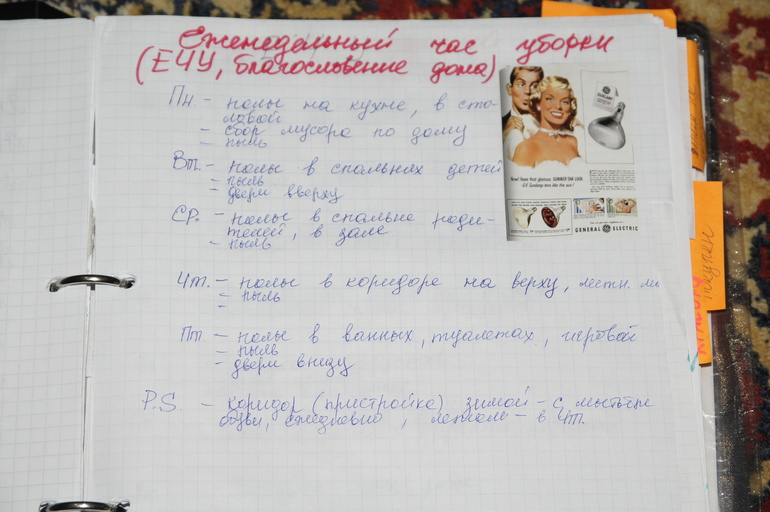 Еженедельный час уборки
(ЕЧУ, благословение дома)
Пн – полы на кухне, в сто-
ловой
– сбор мусора по дому
– пыль
Вт. – полы в спальнях детей
– пыль
– двери вверху
Ср. – полы в спальне роди-
телей, в зале
– пыль
Чт. – полы в коридоре на верху, лестн.
– пыль
–
Пт – полы в ванных, туалетах, игровой
– пыль
– двери внизу
P.S. – коридор (пристройка) зимой – с мытьем
обуви, ежедневно, летом – в Чт.
GENERAL ELECTRIC
покупки